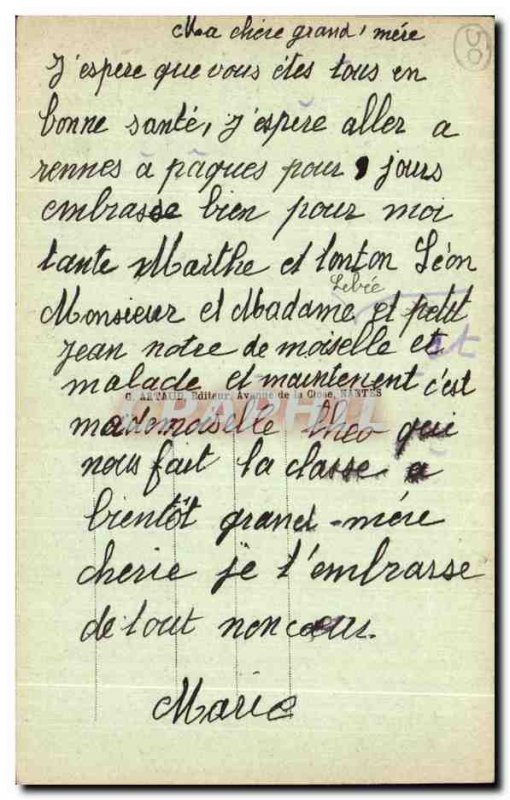 Ma chère grand' mére
50
J'espere que vous étes tous en
bonne santé, J'espère aller a
rennes à pâques pour 9 jours
embrasse bien pour moi
tante Marthe et tonton Léon
Lebée
Monsieur et Madame et petit
jean notre de moiselle et
est
malade et maintenent c'est
G. ARTAUD, Editeur, Avenue de la Close, NANTES
mademoiselle théo qui
nous fait la classe a
bientôt grand-mére
cherie je t'embrasse
de tout non cœur.
Marie